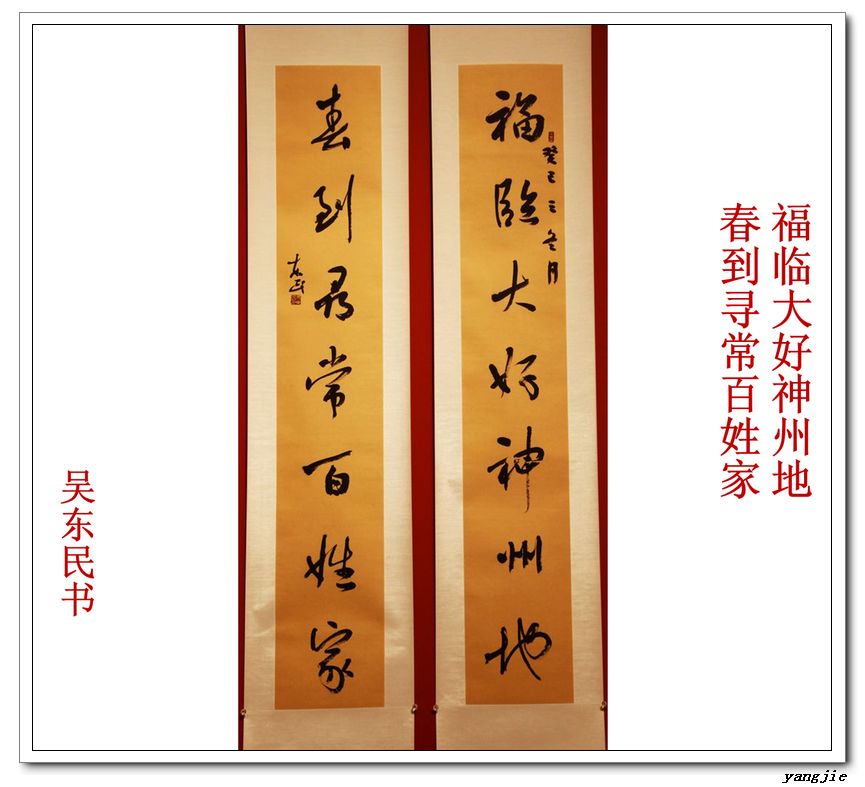 福临大好神州地
春到寻常百姓家
福臨大好神州地
癸巳之冬月
春到尋常百姓家
东民
吴东民书
yangjie